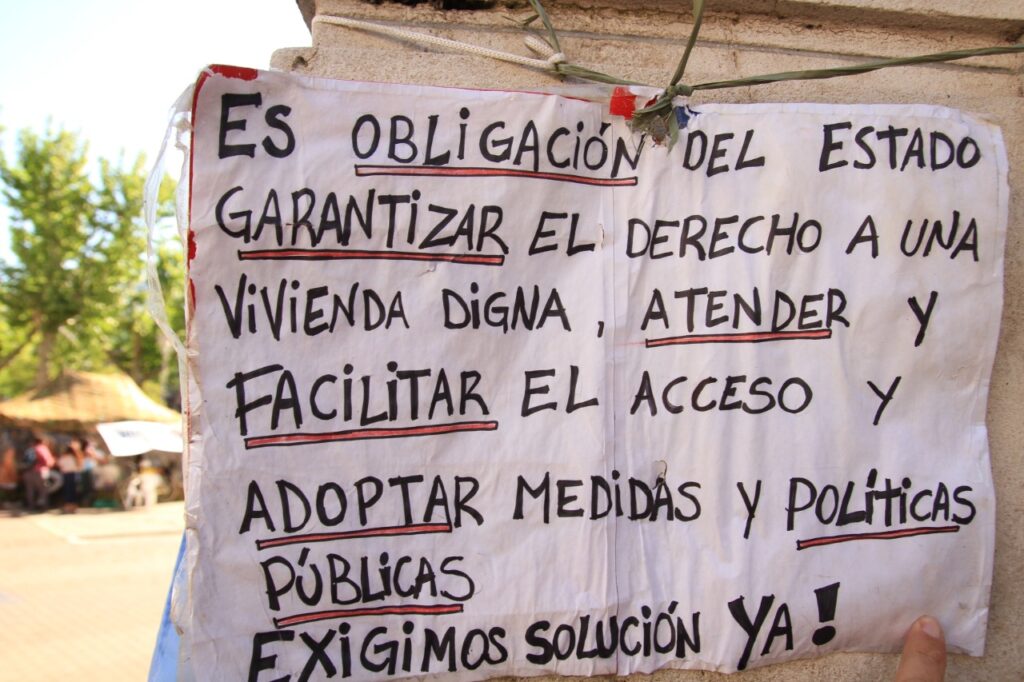 Es OBLiGACiÓN DEL ESTADO
GARANTiZAR EL DERECHO A UNA
ViViENDA DiGNA, ATENDER Y
FACiLiTAR EL ACCESO Y
ADOPTAR MEDiDAS Y POLíTiCAS
PÚBLiCAS
EXiGiMOS SOLUCiÓN YA!